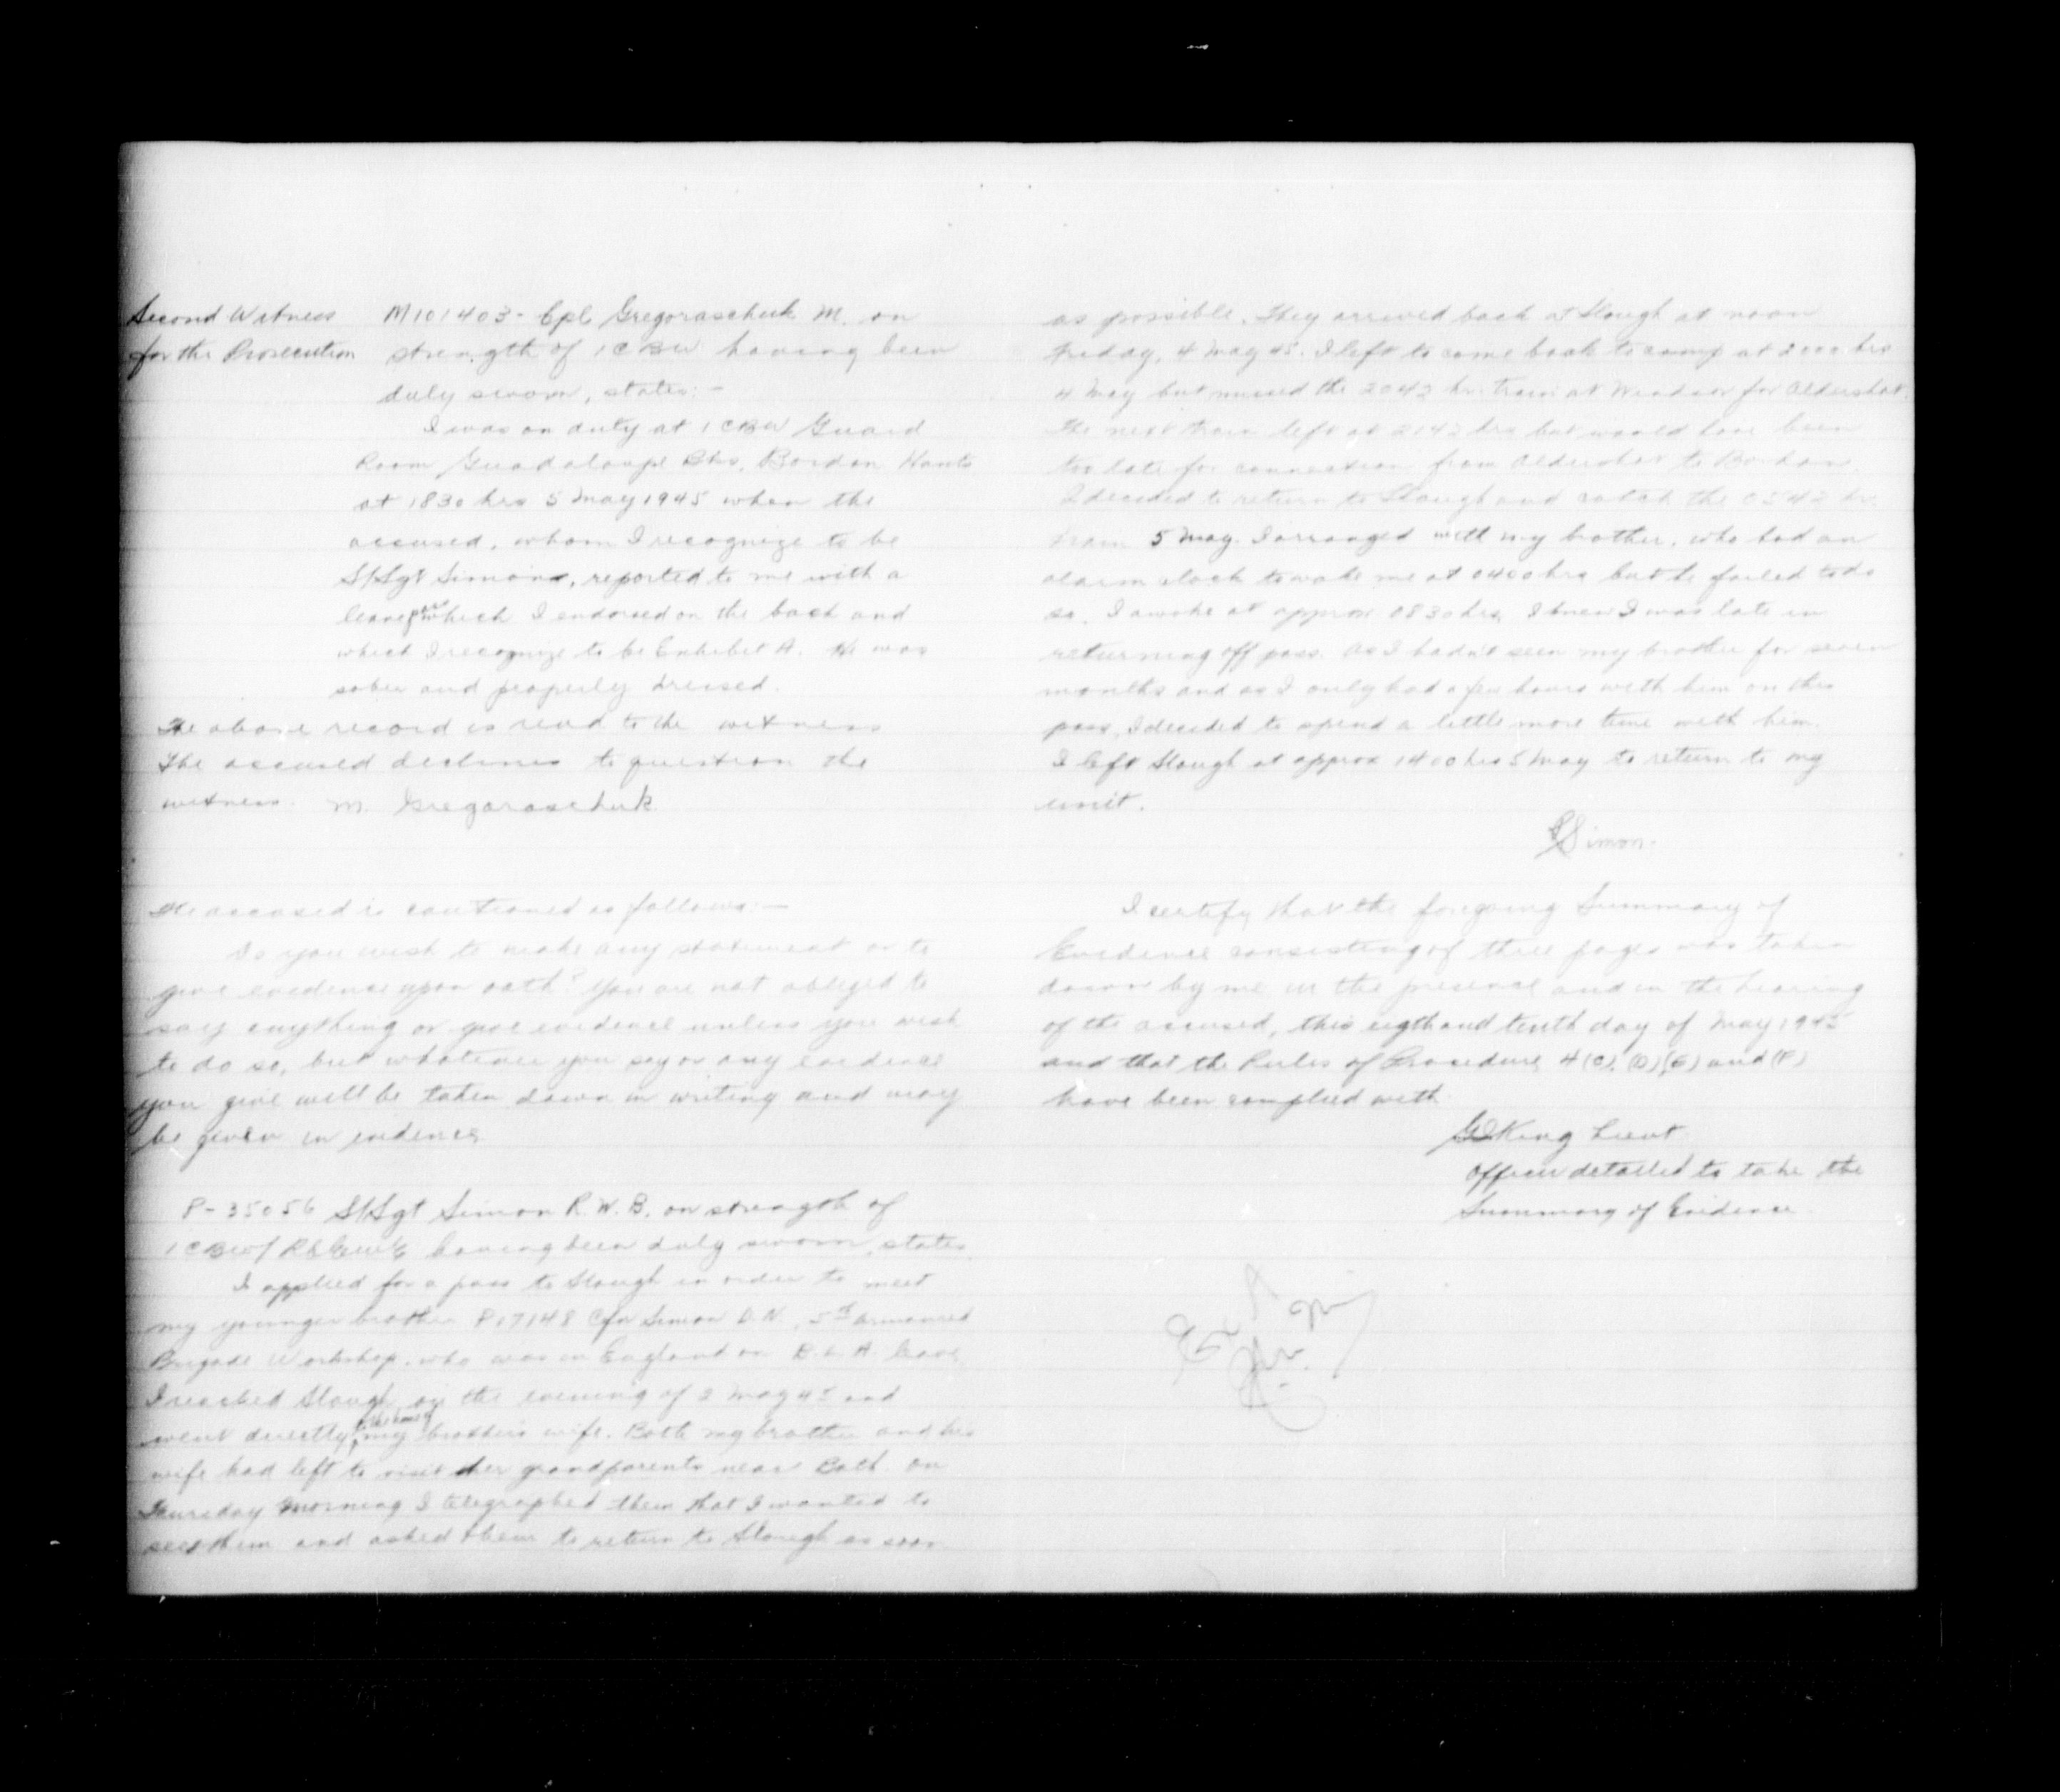 Second Witness
for the Prosecution
M101403 - Cpl Gregoraschuk M. on
strength of 1 CBW having been
duly sworn, states: -
I was on duty at 1 CBW Guard
Room Guadaloupe Bks, Bordon Hants
at 1830 hrs 5 May 1945 when the
accused, whom I recognize to be
S/Sgt Simon, reported to me with a
leave pass which I endorsed on the back and
which I recognize to be Exhibit A. He was
sober and properly dressed.
The above record is read to the witness
The accused declines to question the
witness. M. Gregoraschuk
The accused is cautioned as follows: -
Do you wish to make any statement or to
give evidence upon oath? You are not obliged to
say anything or give evidence unless you wish
to do so, but whatever you say or any evidence
you give will be taken down in writing and may
be given in evidence
P-35056 S/Sgt Simon R.W.B. on strength of
1 CBW having been duly sworn, states
I applied for a pass to Slough in order to meet
my younger brother P17148 Cfn Simon D.N., 5th Armoured
Brigade Workshop, who was in England on B.L.A. leave
I reached Slough on the evening of 2 May 45 and
went directly to the home of my brother's wife. Both my brother and his
wife had left to visit her grandparents near Bath. On
Thursday morning I telegraphed them that I wanted to
see them and asked them to return to Slough as soon
as possible. They arrived back at Slough at noon
Friday, 4 May 45. I left to come back to camp at 2000 hrs
4 May but missed the 2042 hr. train at Windsor for Aldershot.
The next train left at 2142 hrs but would have been
too late for connection from Aldershot to Bordon.
I decided to return to Slough and catch the 0542 hr.
train 5 May. I arranged with my brother, who had an
alarm clock to wake me at 0400 hrs but he failed to do
so. I awoke at approx 0830 hrs. I knew I was late in
returning off pass. As I hadn't seen my brother for seven
months and as I only had a few hours with him on this
pass, I decided to spend a little more time with him.
I left Slough at approx 1400 hrs 5 May to return to my
unit.
Simon.
I certify that the foregoing Summary of
Evidence consisting of three pages was taken
down by me in the presence and in the hearing
of the accused, this eigth and tenth day of May 1945
and that the Rules of Procedure 4 (C), (D), (E) and (F)
have been complied with
King Lieut
Officer detailed to take the
Summary of Evidence.